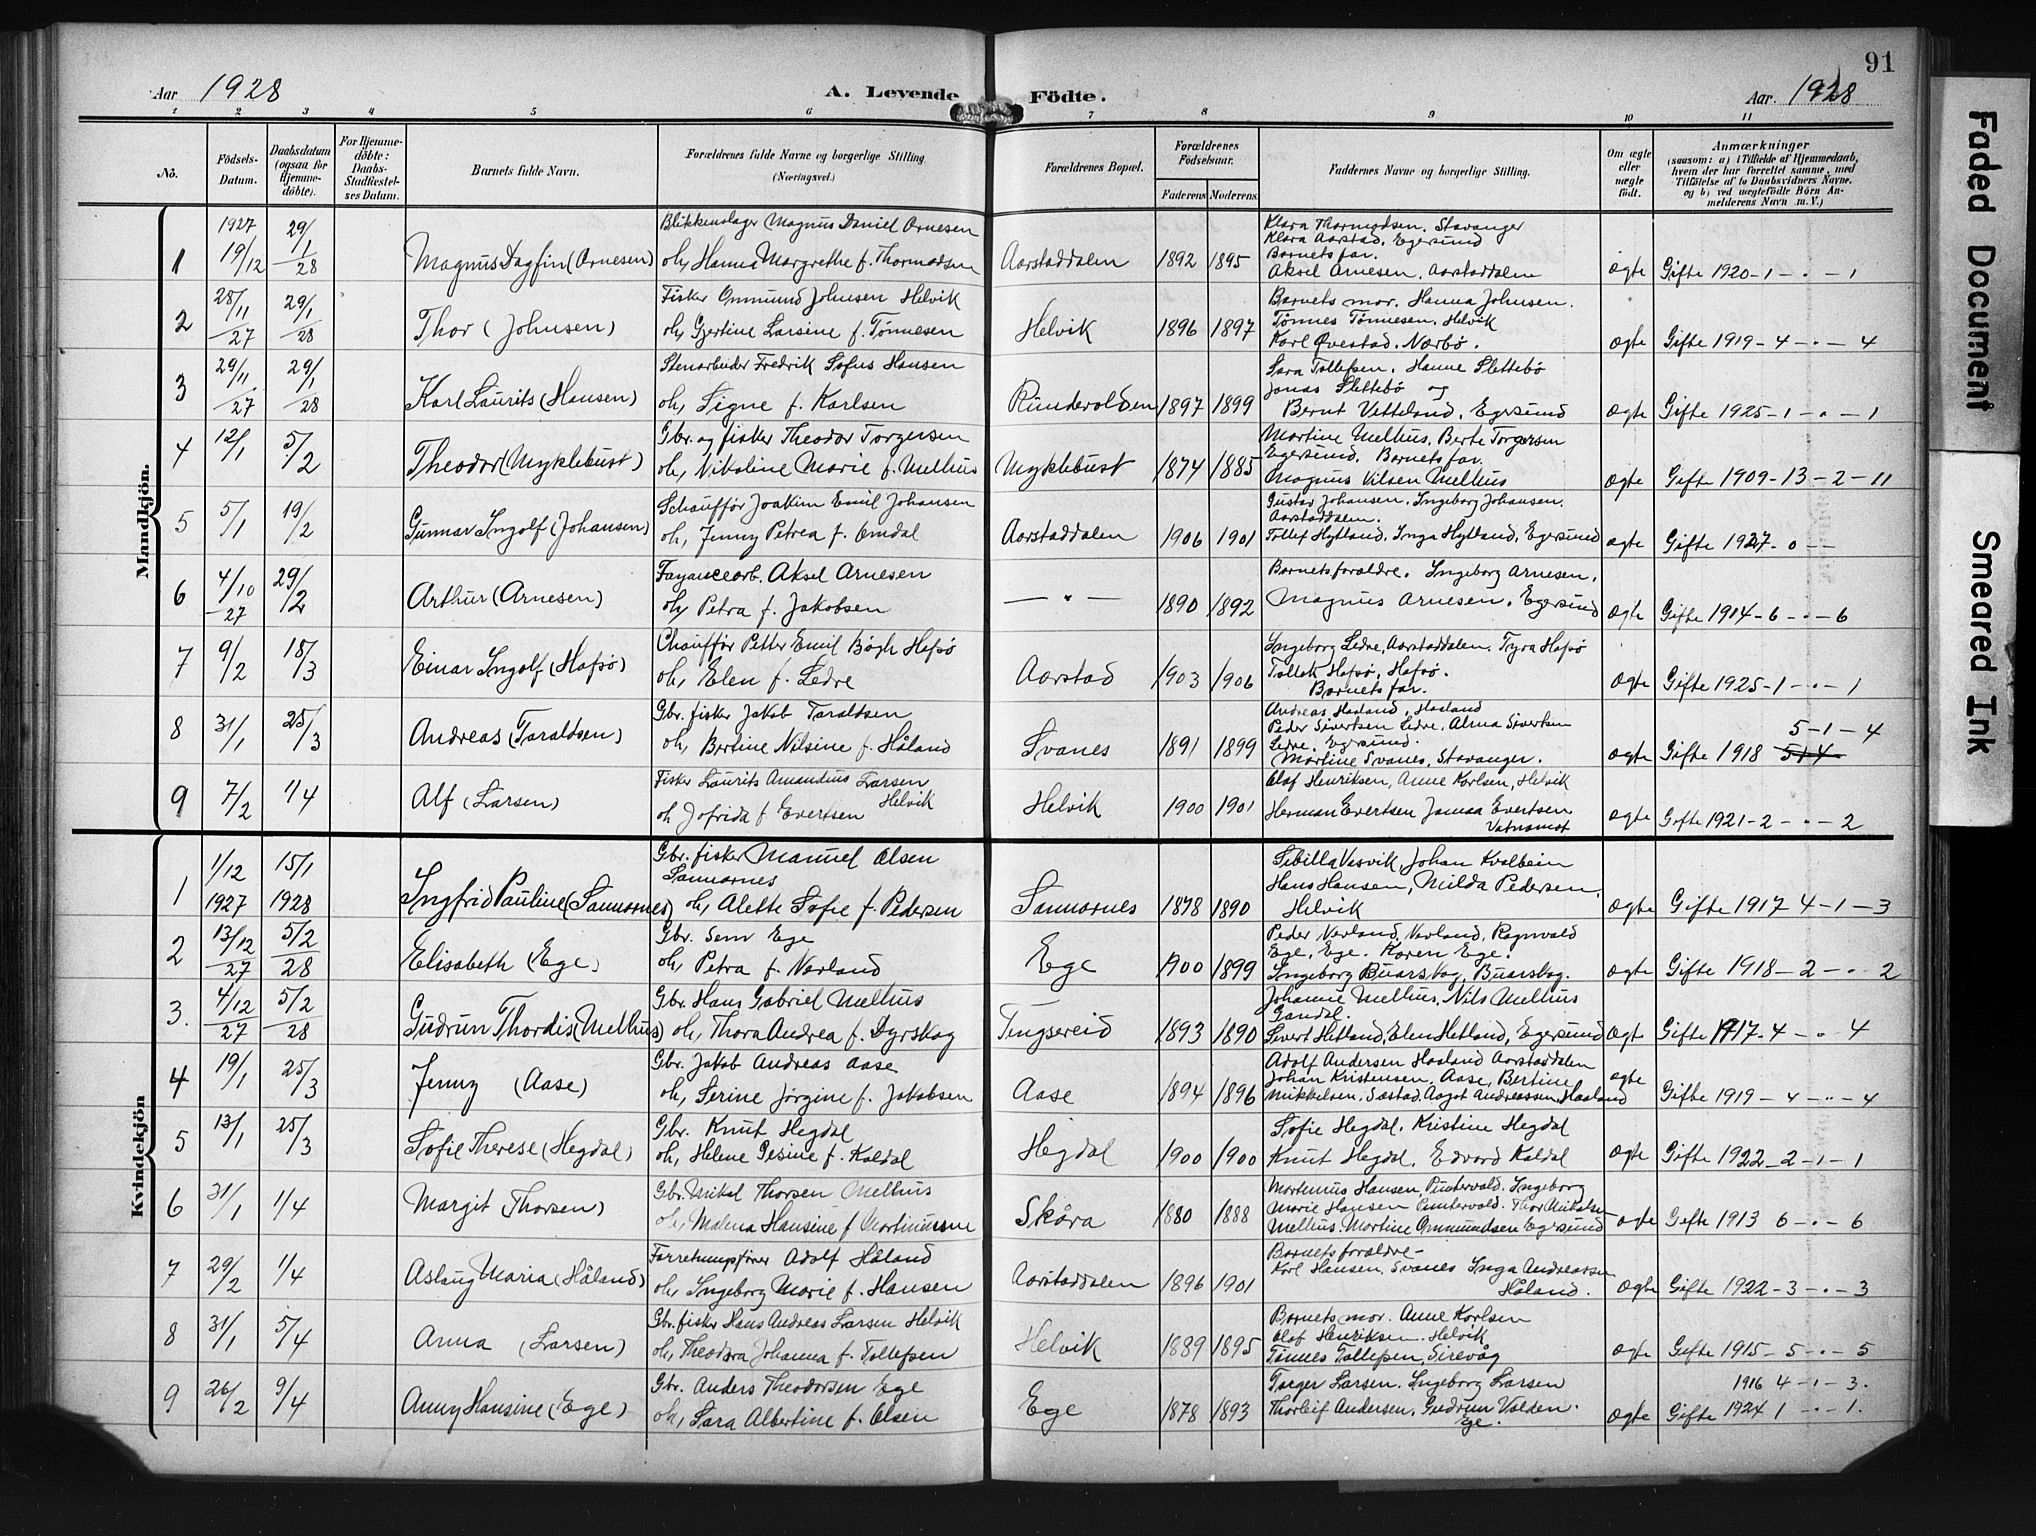 91
Aar 1928
A. Levende
Födte.
Aar. 1928
1 2 3 4 5 6 7 8 9 10 11
No.
Födsels-Datum.
Daabsdatum (ogsaa for Hjemme-döbte).
For Hjemme-döbte: Daabs-Stadfæstel-ses Datum.
Barnets fulde Navn.
Forældrenes fulde Navne og borgerlige Stilling (Næringsvei.)
Forældrenes Bopæl.
Forældrenes Födselsaar.
Faderens Moderens
Faddernes Navne og borgerlige Stilling.
Om ægte eller uægte födt.
Anmærkninger
(saasom: a) i Tilfælde af Hjemmedaab,
hvem der har forrettet samme, med
Tilföielse af to Daabsvidners Navne,
og b) ved uægtefödte Börn An-
melderens Navn m. V.)
Mandkjön.
1 1927 19/12 29/1 28 Magnus Dagfin (Arnesen)
Blikkenslager Magnus Daniel Arnesen
oh, Hanna Margrethe f. Thormodsen
Aarstaddalen 1892 1895
Klara Thormodsen, Stavanger
Klara Aarstad, Egersund
Barnets far.
Aksel Arnesen, Aarstaddalen
ægte Gifte 1920-1-"-1
2 28/11 27 29/1 28 Thor (Johnsen)
Fisker Ommund Johnsen Helvik
oh, Gjertine Larsine f. Tönnesen
Helvik 1896 1897
Barnets mor. Hanna Johnsen.
Tønnes Tønnesen, Helvik
Karl Øvestad, Nærbø.
ægte Gifte 1919-4-"-4
3 29/11 27 29/1 28 Karl Laurits (Hansen)
Stenarbeider Fredrik Sofus Hansen
oh, Signe f. Karlsen
Rundevolden 1897 1899
Sara Tollefsen, Hanne Slettebö
Jonas Slettebö og
Bernt Vetteland, Egersund
ægte Gifte 1925-1-"-1
4 12/1 5/2 Theodor (Myklebust)
Gbr. og fisker Theodor Torgersen
oh, Nikoline Marie f. Melhus
Myklebust 1874 1885
Martine Melhus, Berte Torgersen
Egersund, Barnets far.
Magnus Nilsen Melhus
ægte Gifte 1909-13-2-11
5 5/1 19/2 Gunnar Ingolf (Johansen)
Schauffør Joakim Emil Johansen
oh, Jenny Petrea f. Omdal
Aarstaddalen 1906 1901
Gustav Johansen, Ingeborg Johansen,
Aarstaddalen.
Tollef Hytland, Inga Hytland, Egersund
ægte Gifte 1927-0--
6 4/10 27 29/2 Arthur (Arnesen)
Fayancearb. Aksel Arnesen
oh, Petra f. Jakobsen
— " — 1890 1892
Barnets forældre, Ingeborg Arnesen,
Magnus Arnesen, Egersund
ægte Gifte 1914-6-"-6
7 9/2 18/3 Einar Ingolf (Hafsø)
Chauffør Petter Emil Bögh Hafsø
oh, Elen f. Ledre
Aarstad 1903 1906
Ingeborg Ledre, Aarstaddalen. Tyra Hafsø
Tollak Hafsø, Hafsø.
Barnets far.
ægte Gifte 1925-1-"-1
8 31/1 25/3 Andreas (Taraldsen)
Gbr. fisker Jakob Taraldsen
oh, Bertine Nilsine f. Håland
Svanes 1891 1899
Andreas Haaland, Haaland
Peder Sivertsen Ledre, Alma Sivertsen
Ledre, Egersund.
Martine Svanes, Stavanger.
5-1-4
ægte Gifte 1918 514
9 7/2 1/4 Alf (Larsen)
Fisker Laurits Amandius Larsen
Helvik
oh Jofrida f Evertsen
Helvik 1900 1901
Olaf Henriksen, Anne Karlsen, Helvik
Herman Evertsen Janna Evertsen
Vatnamot
ægte Gifte 1921-2-"-2
Kvindekjön
1 1/12 1927 15/1 1928 Ingfrid Pauline (Sannarnes)
Gbr. fisker Manuel Olsen
Sannarnes
oh, Alette Sofie f. Pedersen
Sannarnes 1878 1890
Sibilla Vasvik, Johan Kvalbein
Hans Hansen, Milda Pedersen,
Helvik
ægte Gifte 1917 4-1-3
2 13/12 27 5/2 28 Elisabeth (Ege)
Gbr. Sem Ege
oh, Petra f. Nerland
Ege 1900 1899
Peder Nerland, Nerland, Ragnvald
Ege, Ege. Karen Ege.
Ingeborg Buarskog, Buarskog.
ægte Gifte 1918-2-"-2
3. 4/12 27 5/2 28 Gudrun Thordis (Melhus)
Gbr. Hans Gabriel Melhus
oh, Thora Andrea f. Dyrskog
Tengsereid 1893 1890
Johanne Melhus, Nils Melhus
Gandal.
Sivert Hetland, Elen Hetland, Egersund
ægte Gifte 1917-4-"-4
4 19/1 25/3 Jenny (Aase)
Gbr. Jakob Andreas Aase
oh, Serine Jørgine f. Jakobsen
Aase 1894 1896
Adolf Andersen Haaland Aarstaddalen
Johan Kristensen, Aase, Bertine
Mikkelsen, Sæstad, Aagot Andreassen, Haaland
ægte Gifte 1919-4-"-4
5 13/1 25/3 Sofie Therese (Hegdal)
Gbr. Knut Hegdal
oh, Helene Gesine f. Kaldal
Hegdal 1900 1900
Sofie Hegdal, Kristine Hegdal
Knut Hegdal, Edvard Kaldal
ægte Gifte 1922-2-1-1
6 31/1 1/4 Margit (Thorsen)
Gbr. Mikal Thorsen Melhus
oh, Malena Hansine f Martinussen
Skåra 1880 1888
Mortinius Hansen, Puntervold. Ingeborg
Marie Hansen Puntervold. Thor Mikalsen
Melhus, Martine Ommundsen Egersund
ægte Gifte 1913 6-"-6
7 29/2 1/4 Aslaug Maria (Håland)
Forretningsfører Adolf Håland
oh, Ingeborg Marie f. Hansen
Aarstaddalen 1896 1901
Barnets forældre-
Karl Hansen, Svanes Inga Andreassen
Håland.
ægte Gifte 1922-3-"-3
8 31/1 5/4 Anna (Larsen)
Gbr. fisker Hans Andreas Larsen Helvik
oh, Theodora Johanna f. Tollefsen
Helvik 1889 1895
Barnets mor. Anne Karlsen
Olaf Henriksen. Helvik
Tønnes Tollefsen, Sirevåg
ægte Gifte 1915-5-"-5
9 26/2 9/4 Anny Hansine (Ege)
Gbr. Anders Theodorsen Ege
oh, Sara Albertine f. Olsen
Ege 1878 1893
Torger Larsen. Ingeborg Larsen
Thorleif Andersen, Gudrun Valden.
Ege.
1916 4-1-3.
ægte Gifte 1924 1-"-1.
Faded Document
Smeared Ink